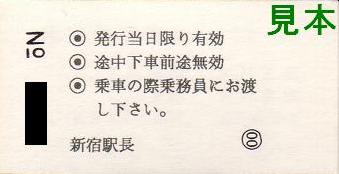 見本
No
◉ 発行当日限り有効
◉ 途中下車前途無効
◉ 乗車の際乗務員にお渡
し下さい。
新宿駅長